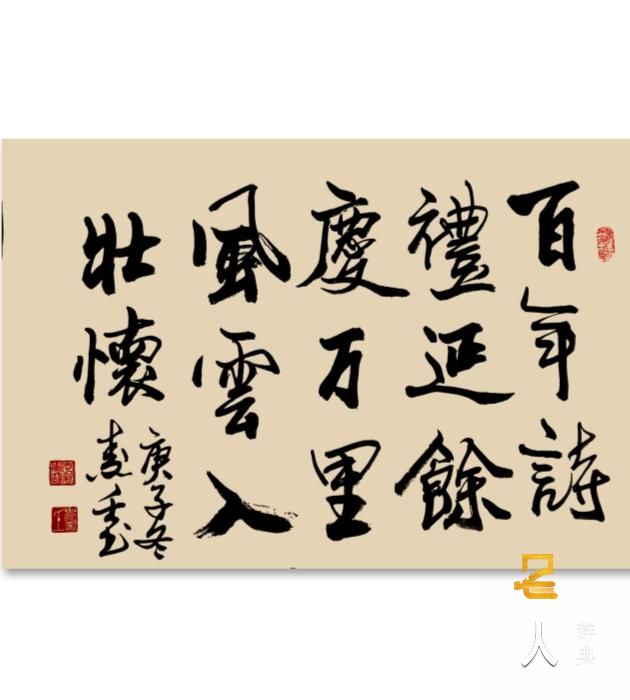 百年詩
禮延餘
慶万里
風雲入
壯懷
庚子冬
名人
辞典